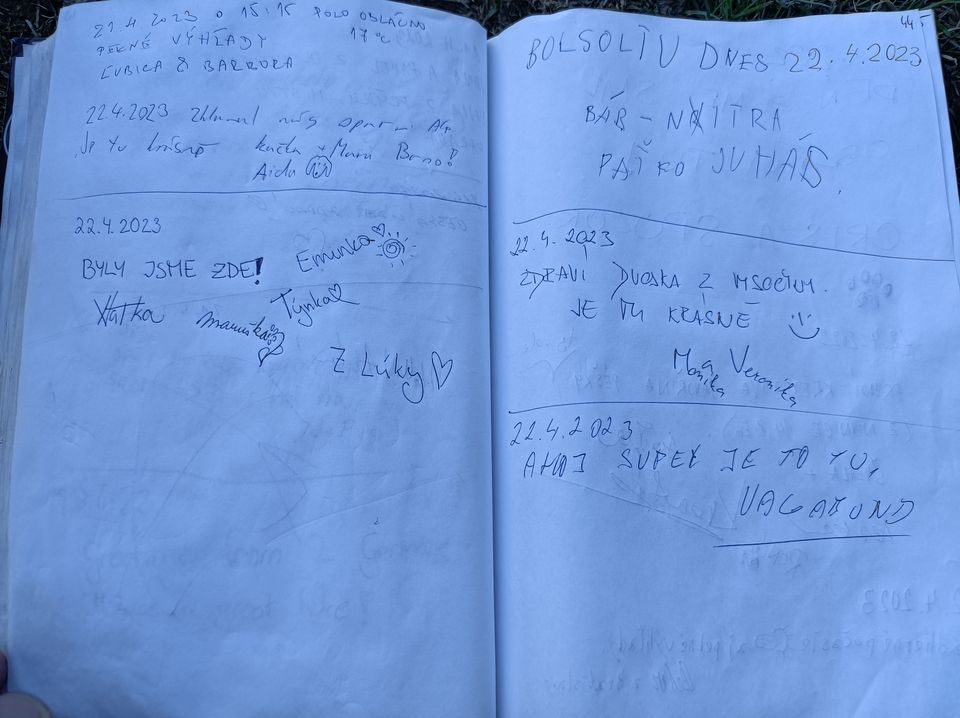 21.4.2023 o 15:15 POLO OBLAČNO
17°C
PEKNÉ VÝHĽADY
ĽUBICA & BARBORA
22.4.2023
Je tu krásně
Aida
22.4.2023
BYLY JSME ZDE!
Eminka
Katka
Maruška
Týnka
Z Lúky
445
BOLSOLTU DNES 22.4.2023
BÁB - NITRA
PAŤKO JUHÁS.
22.4.2023
ZDRAVÍ DVOJKA Z
JE TU KRÁSNE
Monika Veronika
22.4.2023
AHOJ SUPER JE TO TU,
VAGABUND